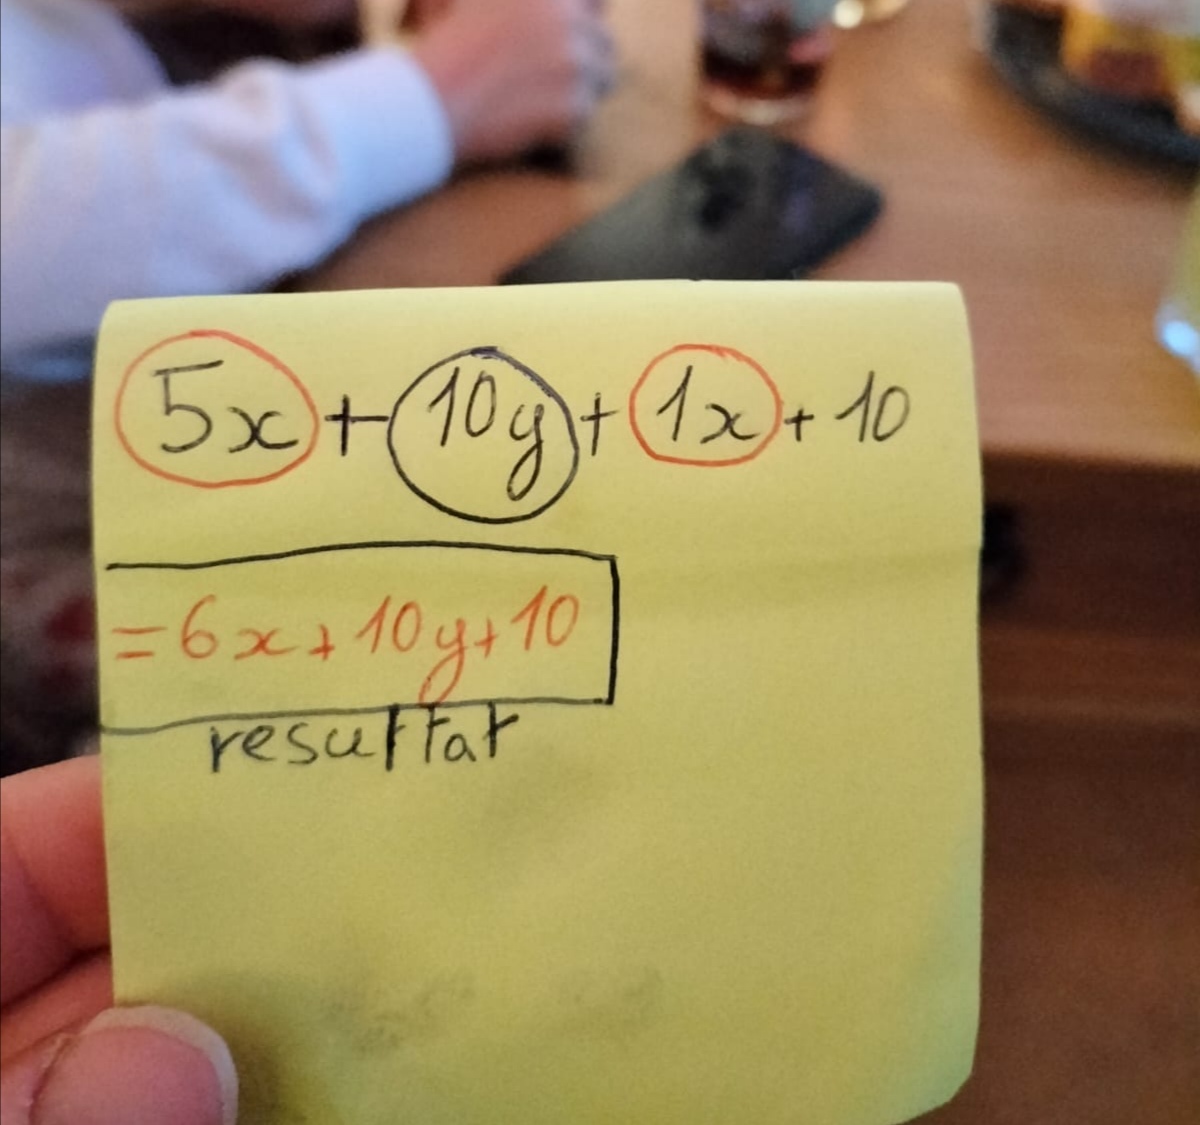 5x + 10y + 1x + 10
= 6x + 10y + 10
resultat